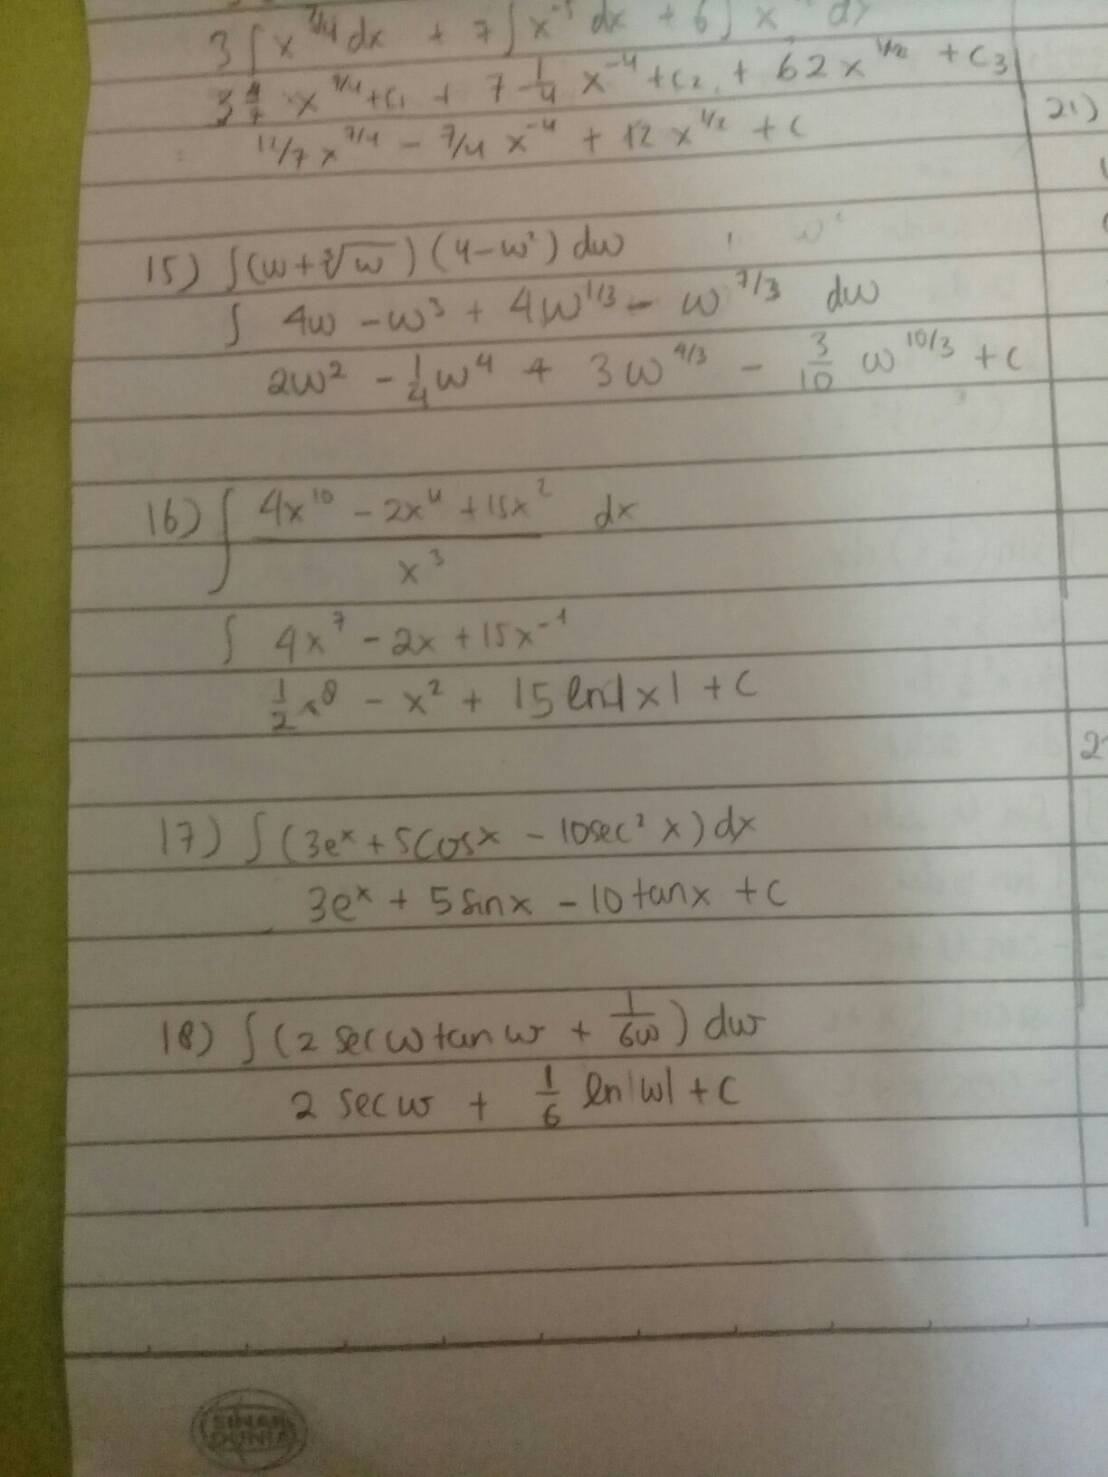 3∫x^3/4 dx + 7∫x^-5 dx + 6∫x dx
3 4/7 · x^7/4 + C1 + 7 -1/4 x^-4 + C2 + 6 2x^1/2 + C3
12/7 x^7/4 - 7/4 x^-4 + 12 x^1/2 + C
21)
15) ∫(w+∛w)(4-w²) dw
∫ 4w - w³ + 4w^1/3 - w^7/3 dw
2w² - 1/4 w⁴ + 3w^4/3 - 3/10 w^10/3 + C
16) ∫ (4x^10 - 2x⁴ + 15x²)/x³ dx
∫ 4x⁷ - 2x + 15x^-1
1/2 x⁸ - x² + 15 ln|x| + C
17) ∫(3e^x + 5cosx - 10sec²x)dx
3e^x + 5 sinx - 10 tanx + C
18) ∫(2 sec w tan w + 1/6w) dw
2 sec w + 1/6 ln|w| + C
SINAR
DUNIA